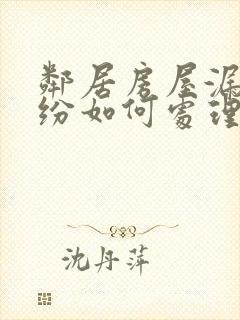 鄰居房屋漏
紛如何處理
沈丹萍